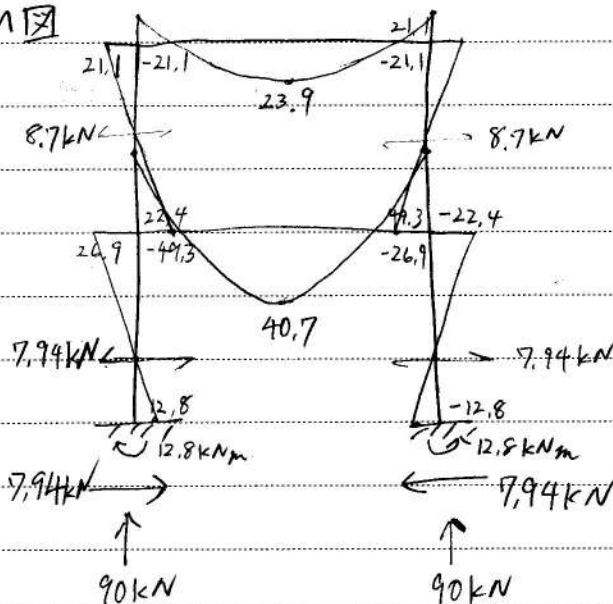 M図
21.1
21.1 -21.1 -21.1
23.9
8.7kN 8.7kN
22.4 49.3 -22.4
26.9 -49.3 -26.9
40.7
7.94kN 7.94kN
12.8 -12.8
12.8kNm 12.8kNm
7.94kN 7.94kN
90kN 90kN